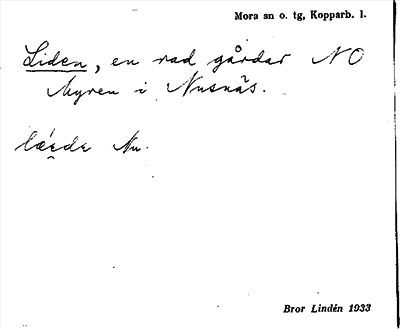 Mora sn o. tg, Kopparb. l.
Liden, en rad gårdar NO
Myren i Nusnäs.
Nu.
Bror Lindén 1933